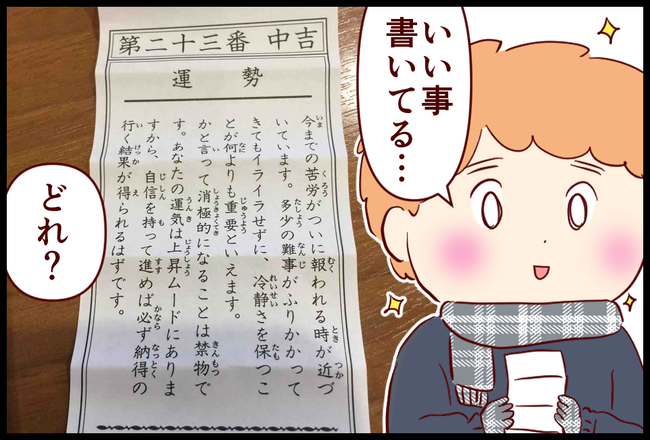 いい事
書いてる…
第二十三番 中吉
運勢
今までの苦労がついに報われる時が近づ
いています。多少の難事がふりかかって
きてもイライラせずに、冷静さを保つこ
とが何よりも重要といえます。
かと言って消極的になることは禁物で
す。あなたの運気は上昇ムードにありま
すから、自信を持って進めば必ず納得の
行く結果が得られるはずです。
どれ?